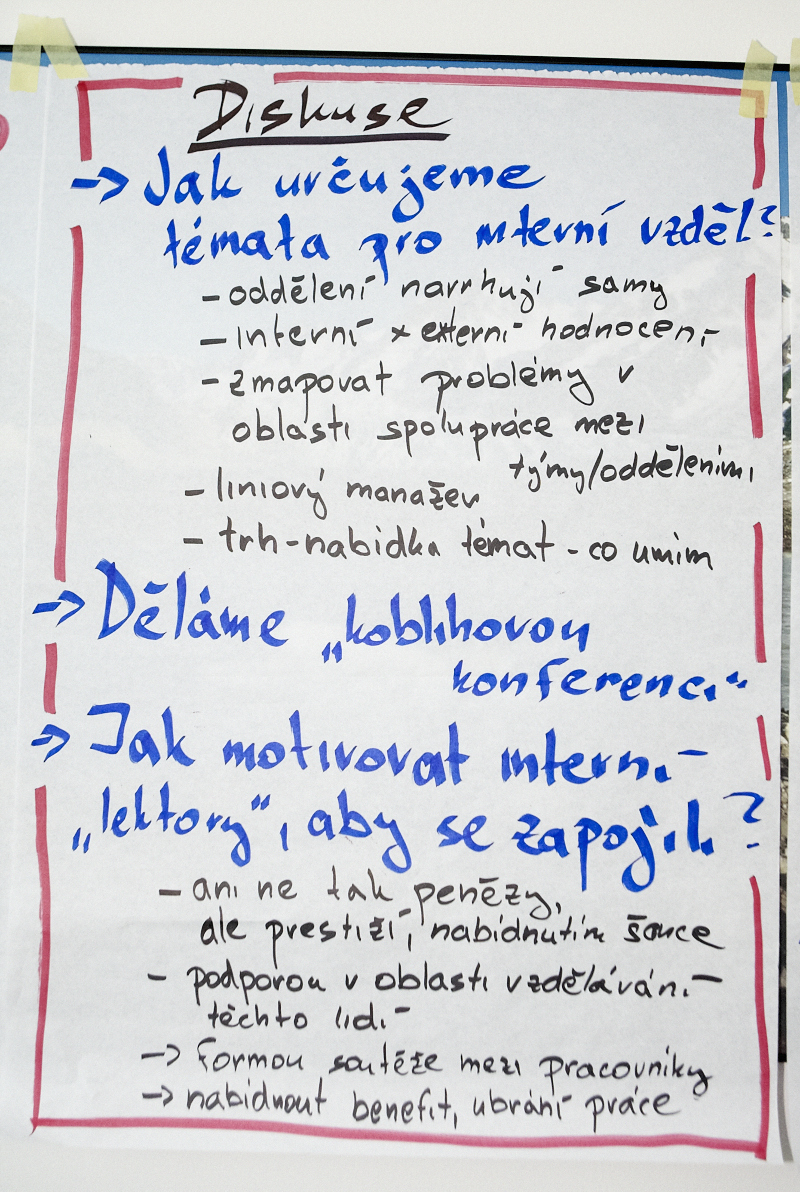 Diskuse
→ Jak určujeme
témata pro interní vzděl?
- oddělení navrhují samy
- interní x externí hodnocení
- zmapovat problémy v
oblasti spolupráce mezi
týmy/odděleními
- liniový manažer
- trh-nabídka témat - co umím
→ Děláme „koblihovou
konferenci“
→ Jak motivovat interní
„lektory“, aby se zapojili?
- ani ne tak penězy,
ale prestiží, nabídnutím šance
- podporou v oblasti vzdělávání
těchto lidí
→ formou soutěže mezi pracovníky
→ nabídnout benefit, ubrání práce